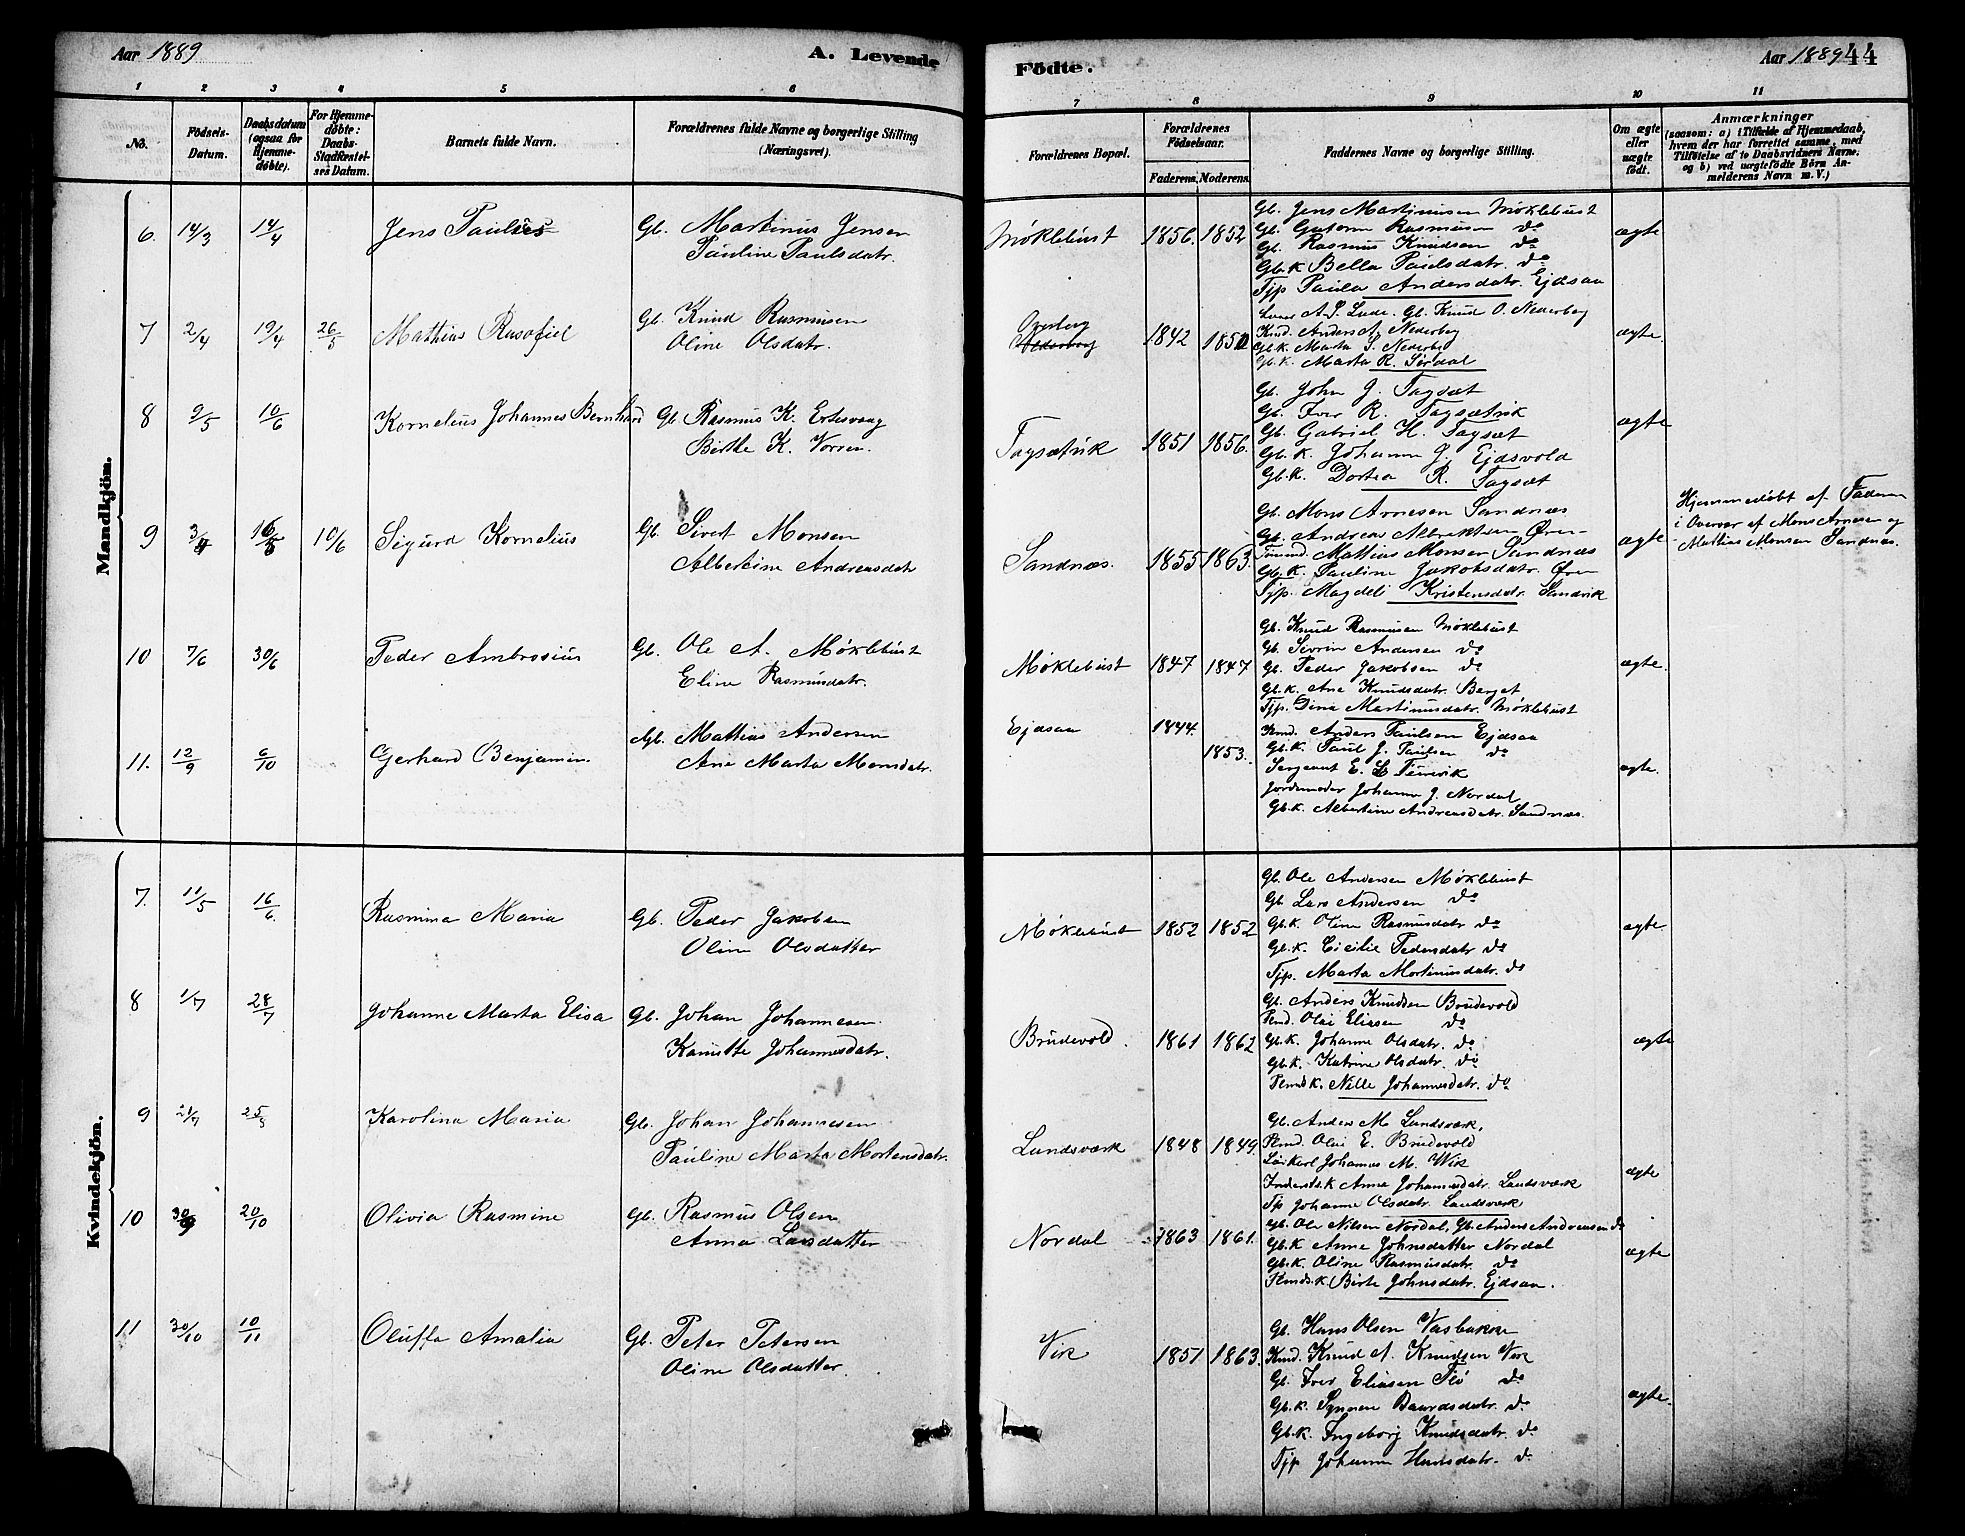 Aar 1889
A. Levende
Födte.
Aar 1889
44
1 2 3 4 5 6 7 8 9 10 11
No.
Födsels-Datum.
Daabsdatum (ogsaa for Hjemmedøbte).
For Hjemmedøbte: Daabs-Stadfæstelses Datum.
Barnets fulde Navn.
Forældrenes fulde Navne og borgerlige Stilling (Næringsvei).
Forældrenes Bopæl.
Forældrenes Födselsaar.
Faderens. Moderens.
Faddernes Navne og borgerlige Stilling.
Om ægte eller uægte födt.
Anmærkninger
(saasom: a) i Tilfælde af Hjemmedaab, hvem der har forrettet samme, med Tilføielse af to Daabsvidners Navne; og b) ved uægtefødte Børn Anmelderens Navn m. V.)
Mandkjön.
6. 14/3 14/4 Jens Paulus
Gb. Martinus Jensen
Pauline Paulsdatr.
Møklebust 1856. 1852
Gb. Jens Martinusen Møklebust
Gb. Gutorm Rasmusen do
Gb. Rasmus Knudsen do
Gb.k Bella Paulsdatr. do
Tjp Paula Andersdatr. Ejdsaa
ægte
7 2/4 19/4 26/5 Mathias Rasofiel
Gb. Knud Rasmusen
Oline Olsdatr.
Overberg
Nederberg
1842 1850
Gb. Knud O. Nederberg
Kmd. Anders Nederberg
Gb.k. Marta S. Nederberg
Gb.k. Marta R. Sørdal
ægte.
8 9/5 10/6 Kornelius Johannes Bernhard
Gb. Rasmus K. Ertesvaag
Birthe K. Vorren.
Tagsætvik 1851 1856.
Gb. John J. Tagsæt
Gb. Iver R. Tagsætvik
Gb. Gabriel H. Tagsæt
Gb.k. Johanne J. Ejdsvold
Gb.k. Dortea R. Tagsæt
ægte
9 3/4 16/5 10/6 Sigurd Kornelius
Gb. Sivert Monsen
Albertine Andreasdatr
Sandnæs. 1855 1863.
Gb. Mons Arnesen Sandnæs
Gb. Andreas Albriktsen Øren
Mathias Monsen Sandnæs
Gb.k. Pauline Jakobsdatr. Øren
Tjp. Magdeli Kristensdatr. Sandvik
ægte
Hjemmedøbt af Faderen
i Overvær af Mons Arnesen og
Mathias Monsen Sandnæs.
10 7/6 30/6 Peder Ambrosius
Gb. Ole A. Møklebust
Eline Rasmusdatr.
Møklebust 1847 1847
Gb. Knud Rasmusen Møklebust
Gb. Sivrin Andersen do
Gb. Peder Jakobsen do
Gb.k. Ane Knudsdatr. Berget
Tjp. Dina Martinusdatr. Møklebust
ægte.
11. 12/9 6/10 Gerhard Benjamin.
Gb. Mathias Andersen
Ane Marta Monsdatr.
Ejdsaa 1844. 1853.
Kmd. Anders Paulsen Ejdsaa
Gb.k. Paul J. Paulsen do
Sergeant E.
Jordemoder Johanne J. Nordal
Gb.k. Albertine Andreasdatr. Sandnæs.
ægte.
Kvindekjön.
7. 11/5 16/6. Rasmina Maria
Gb. Peder Jakobsen
Oline Olsdatter
Møklebust 1852 1852
Gb. Ole Andersen Møklebust
Gb Lars Andersen do
Gb.k. Oline Rasmusdatr do
Gb.k. Cicilie Pedersdatr do
Tjp. Marta Mortinusdatr. do
ægte
8 1/7 28/7 Johanne Marta Elisa
Gb. Johan Johannesen.
Kanutte Johannesdatr.
Brudevold. 1861 1862
Gb. Anders Knudsen Brudevold
Olai Eliasen do
Gb.k. Johanne Olsdatr. do
Gb.k. Katrine Olsdatr. do
Nille Johannesdatr. do
ægte
9 21/7 25/8 Karolina Maria
Gb. Johan Johannesen
Pauline Marta Mortensdatr.
Landsværk 1848 1849.
Gb. Anders M. Landsværk,
Olai E. Brudevold
Johannes M. Wik
Anne Johannesdatr. Landsværk
Tp Johanne Olsdatr. Landsværk
ægte
10 30/9 20/10 Olivia Rasmine
Gb. Rasmus Olsen
Anna Larsdatter
Nordal 1863 1861.
Gb. Ole Nilsen Nordal, Gb. Anders Andreasen do
Gb.k Anne Johnsdatter Nordal
Gb.k. Oline Rasmusdatr. do
Birte Johnsdatr. Ejdsaa.
ægte
11 30/10 10/11 Oluffa Amalia
Gb. Peter Petersen
Oline Olsdatter.
Vik 1851 1863.
Gb. Hans Olsen
Kmd. Knud A. Knudsen Vik
Gb. Iver Eliasen do
Gb.k. Synneve Baardsdatr. do
Gb.k. Ingeborg Knudsdatr. do
Tjp Johanne Hansdatr. do
ægte.